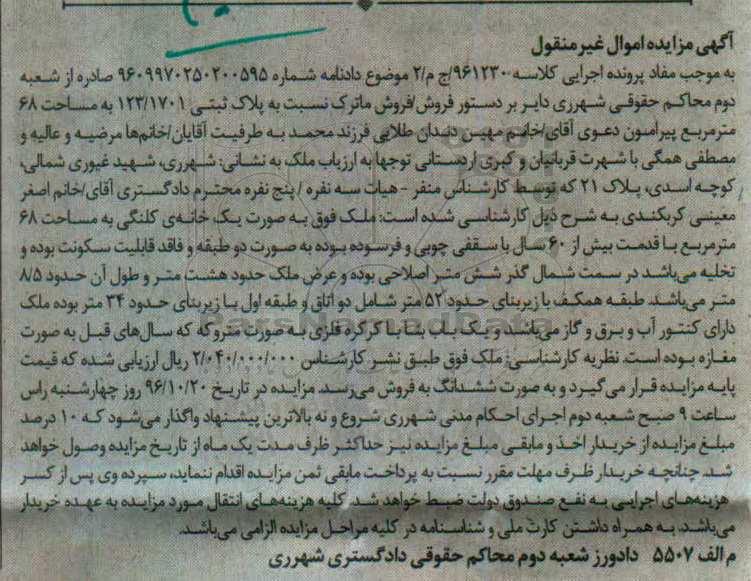 آگهی مزایده اموال غیرمنقول
به موجب مفاد پرونده اجرایی کلاسه ۹۶۱۲۳۰/ج م/۲ موضوع دادنامه شماره ۹۶۰۹۹۷۰۲۵۰۲۰۰۵۹۵ صادره از شعبه
دوم محاکم حقوقی شهرری دایر بر دستور فروش/فروش ماترک نسبت به پلاک ثبتی ۱۲۳/۱۷۰۱ به مساحت ۶۸
مترمربع پیرامون دعوی آقای/خانم مهین دندان طلایی فرزند محمد به طرفیت آقایان/خانم‌ها مرضیه و عالیه و
مصطفی همگی با شهرت قربانیان و کبری اردستانی توجها به ارزیاب ملک به نشانی: شهرری، شهید غیوری شمالی،
کوچه اسدی، پلاک ۲۱ که توسط کارشناس منفر - هیات سه نفره / پنج نفره محترم دادگستری آقای/خانم اصغر
معینی کربکندی به شرح ذیل کارشناسی شده است: ملک فوق به صورت یک، خانه‌ی کلنگی به مساحت ۶۸
مترمربع با قدمت بیش از ۶۰ سال با سقفی چوبی و فرسوده بوده به صورت دو طبقه و فاقد قابلیت سکونت بوده و
تخلیه می‌باشد در سمت شمال گذر شش متر اصلاحی بوده و عرض ملک حدود هشت متر و طول آن حدود ۸/۵
متر می‌باشد. طبقه همکف با زیربنای حدود ۵۲ متر شامل دو اتاق و طبقه اول با زیربنای حدود ۳۴ متر بوده ملک
دارای کنتور آب و برق و گاز می‌باشد و یک باب بنا با کرکره فلزی به صورت متروکه که سال‌های قبل به صورت
مغازه بوده است. نظریه کارشناسی: ملک فوق طبق نشر کارشناس ۲/۰۴۰/۰۰۰/۰۰۰ ریال ارزیابی شده که قیمت
پایه مزایده قرار می‌گیرد و به صورت ششدانگ به فروش می‌رسد. مزایده در تاریخ ۹۶/۱۰/۲۰ روز چهارشنبه راس
ساعت ۹ صبح شعبه دوم اجرای احکام مدنی شهرری شروع و به بالاترین پیشنهاد واگذار می‌شود که ۱۰ درصد
مبلغ مزایده از خریدار اخذ و مابقی مبلغ مزایده نیز حداکثر ظرف مدت یک ماه از تاریخ مزایده وصول خواهد
شد. چنانچه خریدار ظرف مهلت مقرر نسبت به پرداخت مابقی ثمن مزایده اقدام ننماید، سپرده وی پس از کسر
هزینه‌های اجرایی به نفع صندوق دولت ضبط خواهد شد. کلیه هزینه‌های انتقال مورد مزایده به عهده خریدار
می‌باشد. به همراه داشتن کارت ملی و شناسنامه در کلیه مراحل مزایده الزامی می‌باشد.
م الف ۵۵۰۷ دادورز شعبه دوم محاکم حقوقی دادگستری شهرری